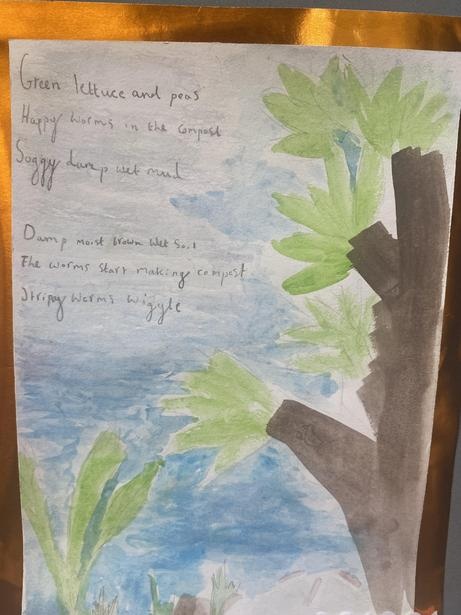 Green lettuce and peas
Happy worms in the compost
Soggy damp wet mud
Damp moist brown wet soil
The worms start making compost
Stripy worms wiggle